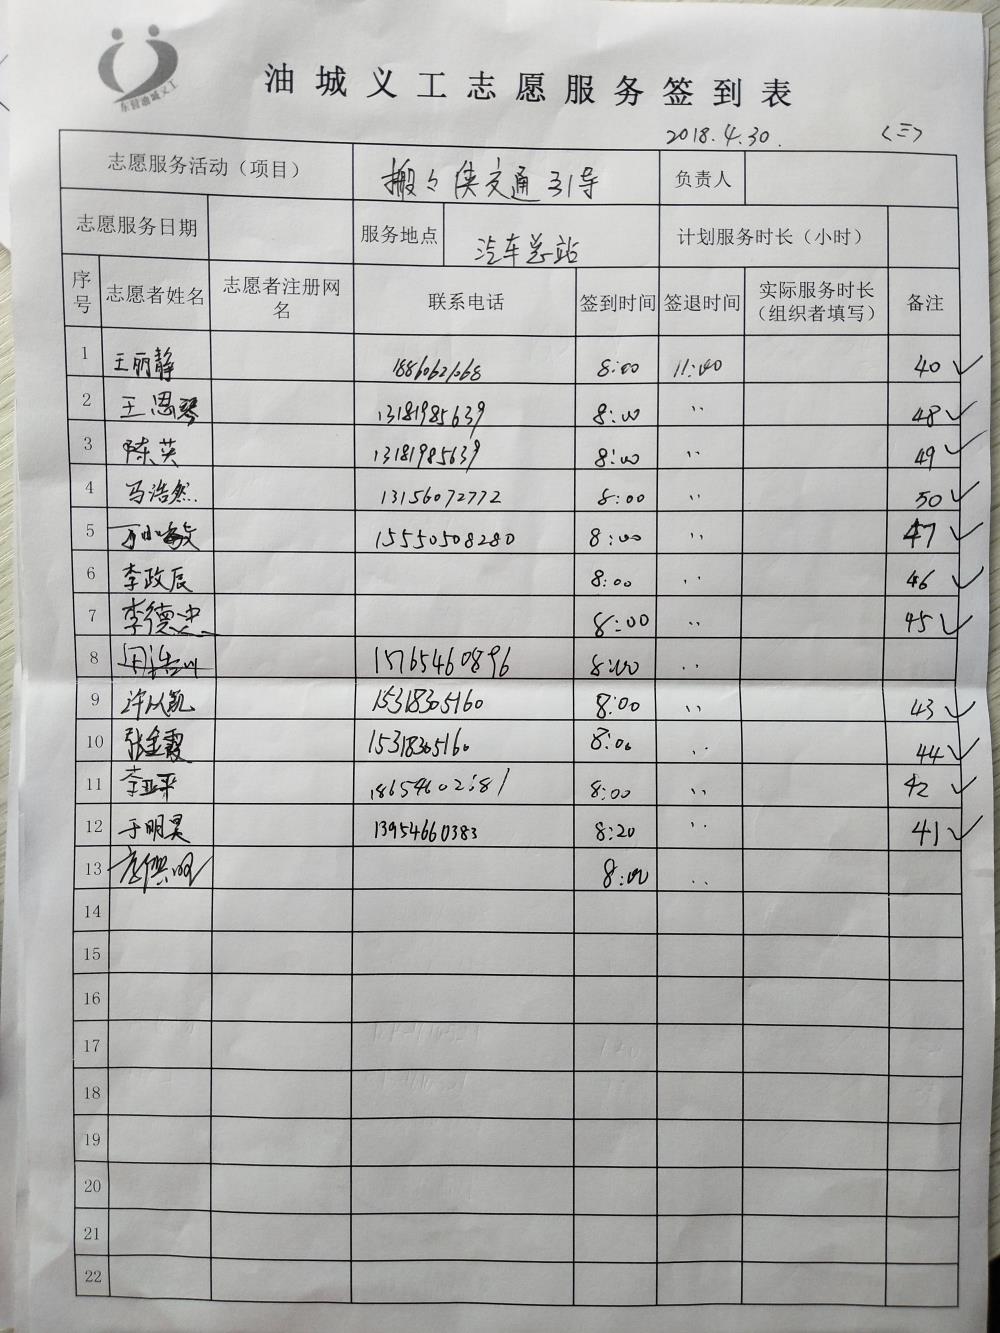 东营油城义工
油城义工志愿服务签到表
2018.4.30. (三)
志愿服务活动(项目) 搬々侠交通引导 负责人
志愿服务日期 服务地点 汽车总站 计划服务时长(小时)
序号 志愿者姓名 志愿者注册网名 联系电话 签到时间 签退时间 实际服务时长(组织者填写) 备注
1 王丽静 8:00 11:00 40 ✓
2 王思琴 13181985639 8:00 '' 48 ✓
3 陈英 13181985639 8:00 '' 49 ✓
4 马浩然 13156072772 8:00 '' 50 ✓
5 15550508280 8:00 '' 47 ✓
6 李政辰 8:00 '' 46 ✓
7 李德忠 8:00 '' 45 ✓
8 17654660896 8:00 ''
9 许以凯 15318305160 8:00 '' 43 ✓
10 张金霞 15318305160 8:00 '' 44 ✓
11 李亚平 8:00 '' 42 ✓
12 于明昊 13954660383 8:20 '' 41 ✓
13 8:00 ''
14
15
16
17
18
19
20
21
22